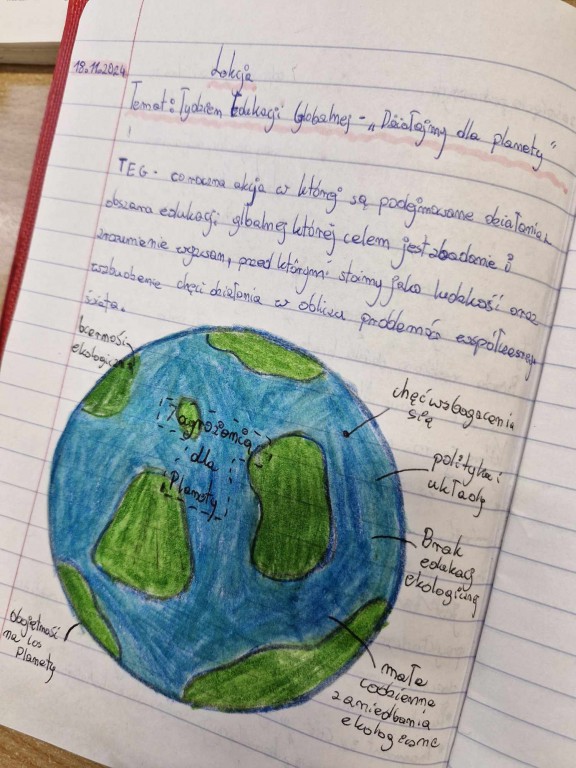 18.11.2024
Lekcja
Temat: Tydzień Edukacji Globalnej - "Działajmy dla planety"
TEG - coroczna akcja w której są podejmowane działania z
obszaru edukacji globalnej której celem jest zbadanie i
zrozumienie wyzwań, przed którymi stoimy jako ludzkość oraz
wzbudzenie chęci działania w obliczu problemów współczesnego
świata.
bierność
ekologiczna
Zagrożenia
dla
Planety
chęć wzbogacenia
się
polityka i
układy
Brak
edukacji
ekologicznej
małe
codzienne
zaniedbania
ekologiczne
Obojętność
na los
Planety